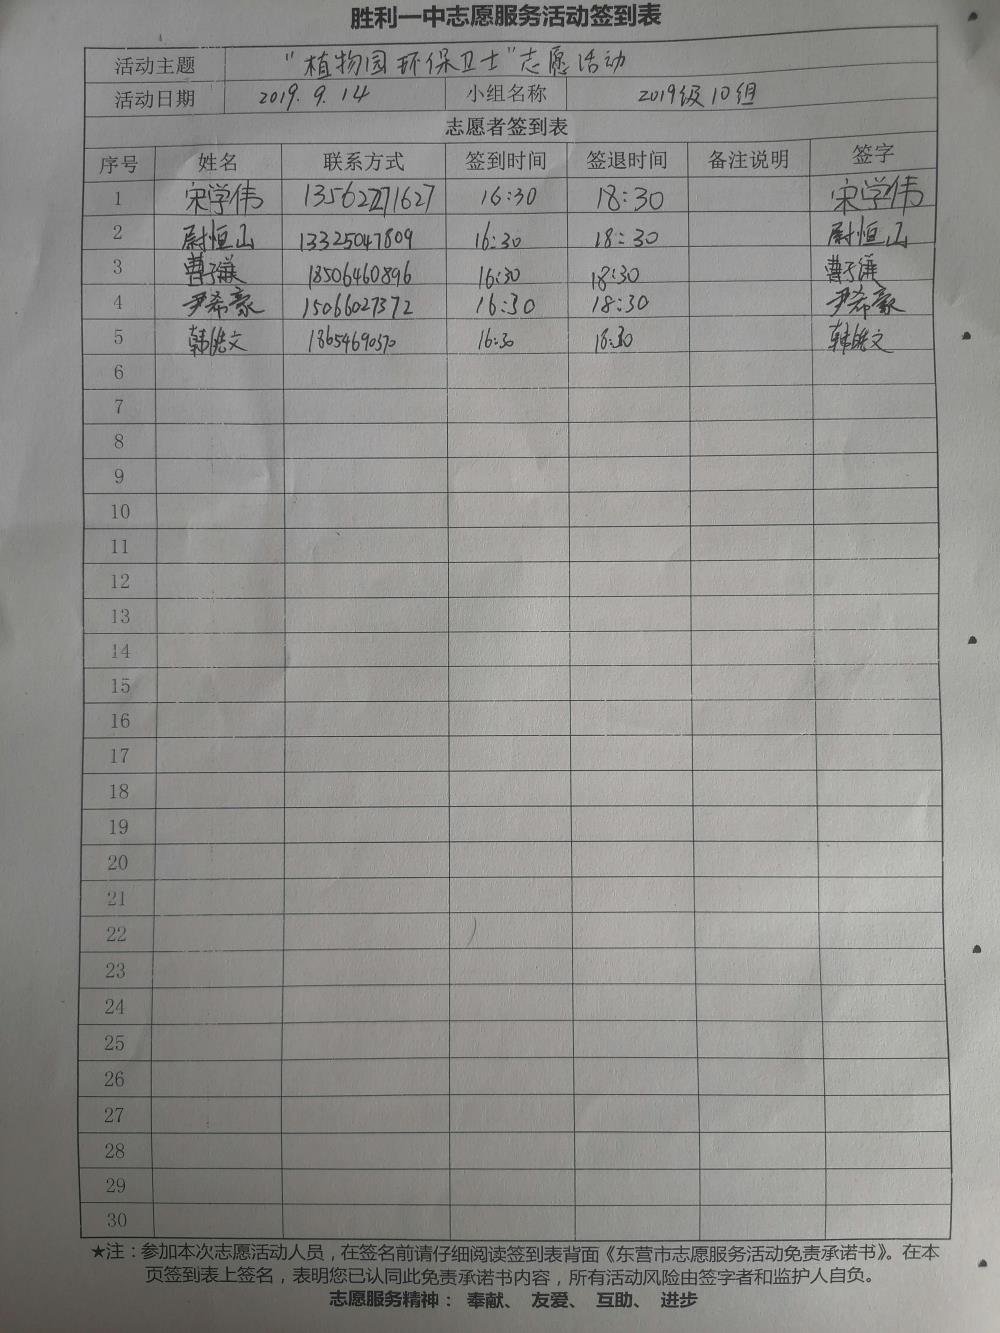 胜利一中志愿服务活动签到表
活动主题 “植物园环保卫士”志愿活动
活动日期 2019.9.14 小组名称 2019级10组
志愿者签到表
序号 姓名 联系方式 签到时间 签退时间 备注说明 签字
1 宋学伟 16:30 18:30 宋学伟
2 尉恒山 13325047809 16:30 18:30 尉恒山
3 18506460896 16:30 18:30
4 尹希豪 15066027372 16:30 18:30 尹希豪
5 18654690370 16:30 18:30
6
7
8
9
10
11
12
13
14
15
16
17
18
19
20
21
22
23
24
25
26
27
28
29
30
★注：参加本次志愿活动人员，在签名前请仔细阅读签到表背面《东营市志愿服务活动免责承诺书》。在本
页签到表上签名，表明您已认同此免责承诺书内容，所有活动风险由签字者和监护人自负。
志愿服务精神： 奉献、 友爱、 互助、 进步